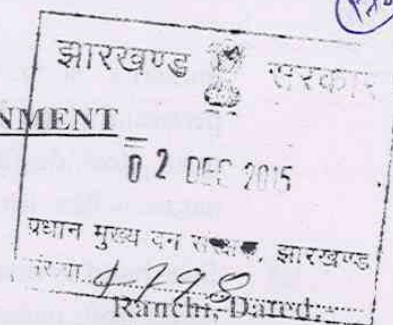 झारखण्ड सरकार
NMENT
02 DEC 2015
प्रधान मुख्य वन संरक्षक, झारखण्ड
संख्या 4798
Ranchi, Dated:-